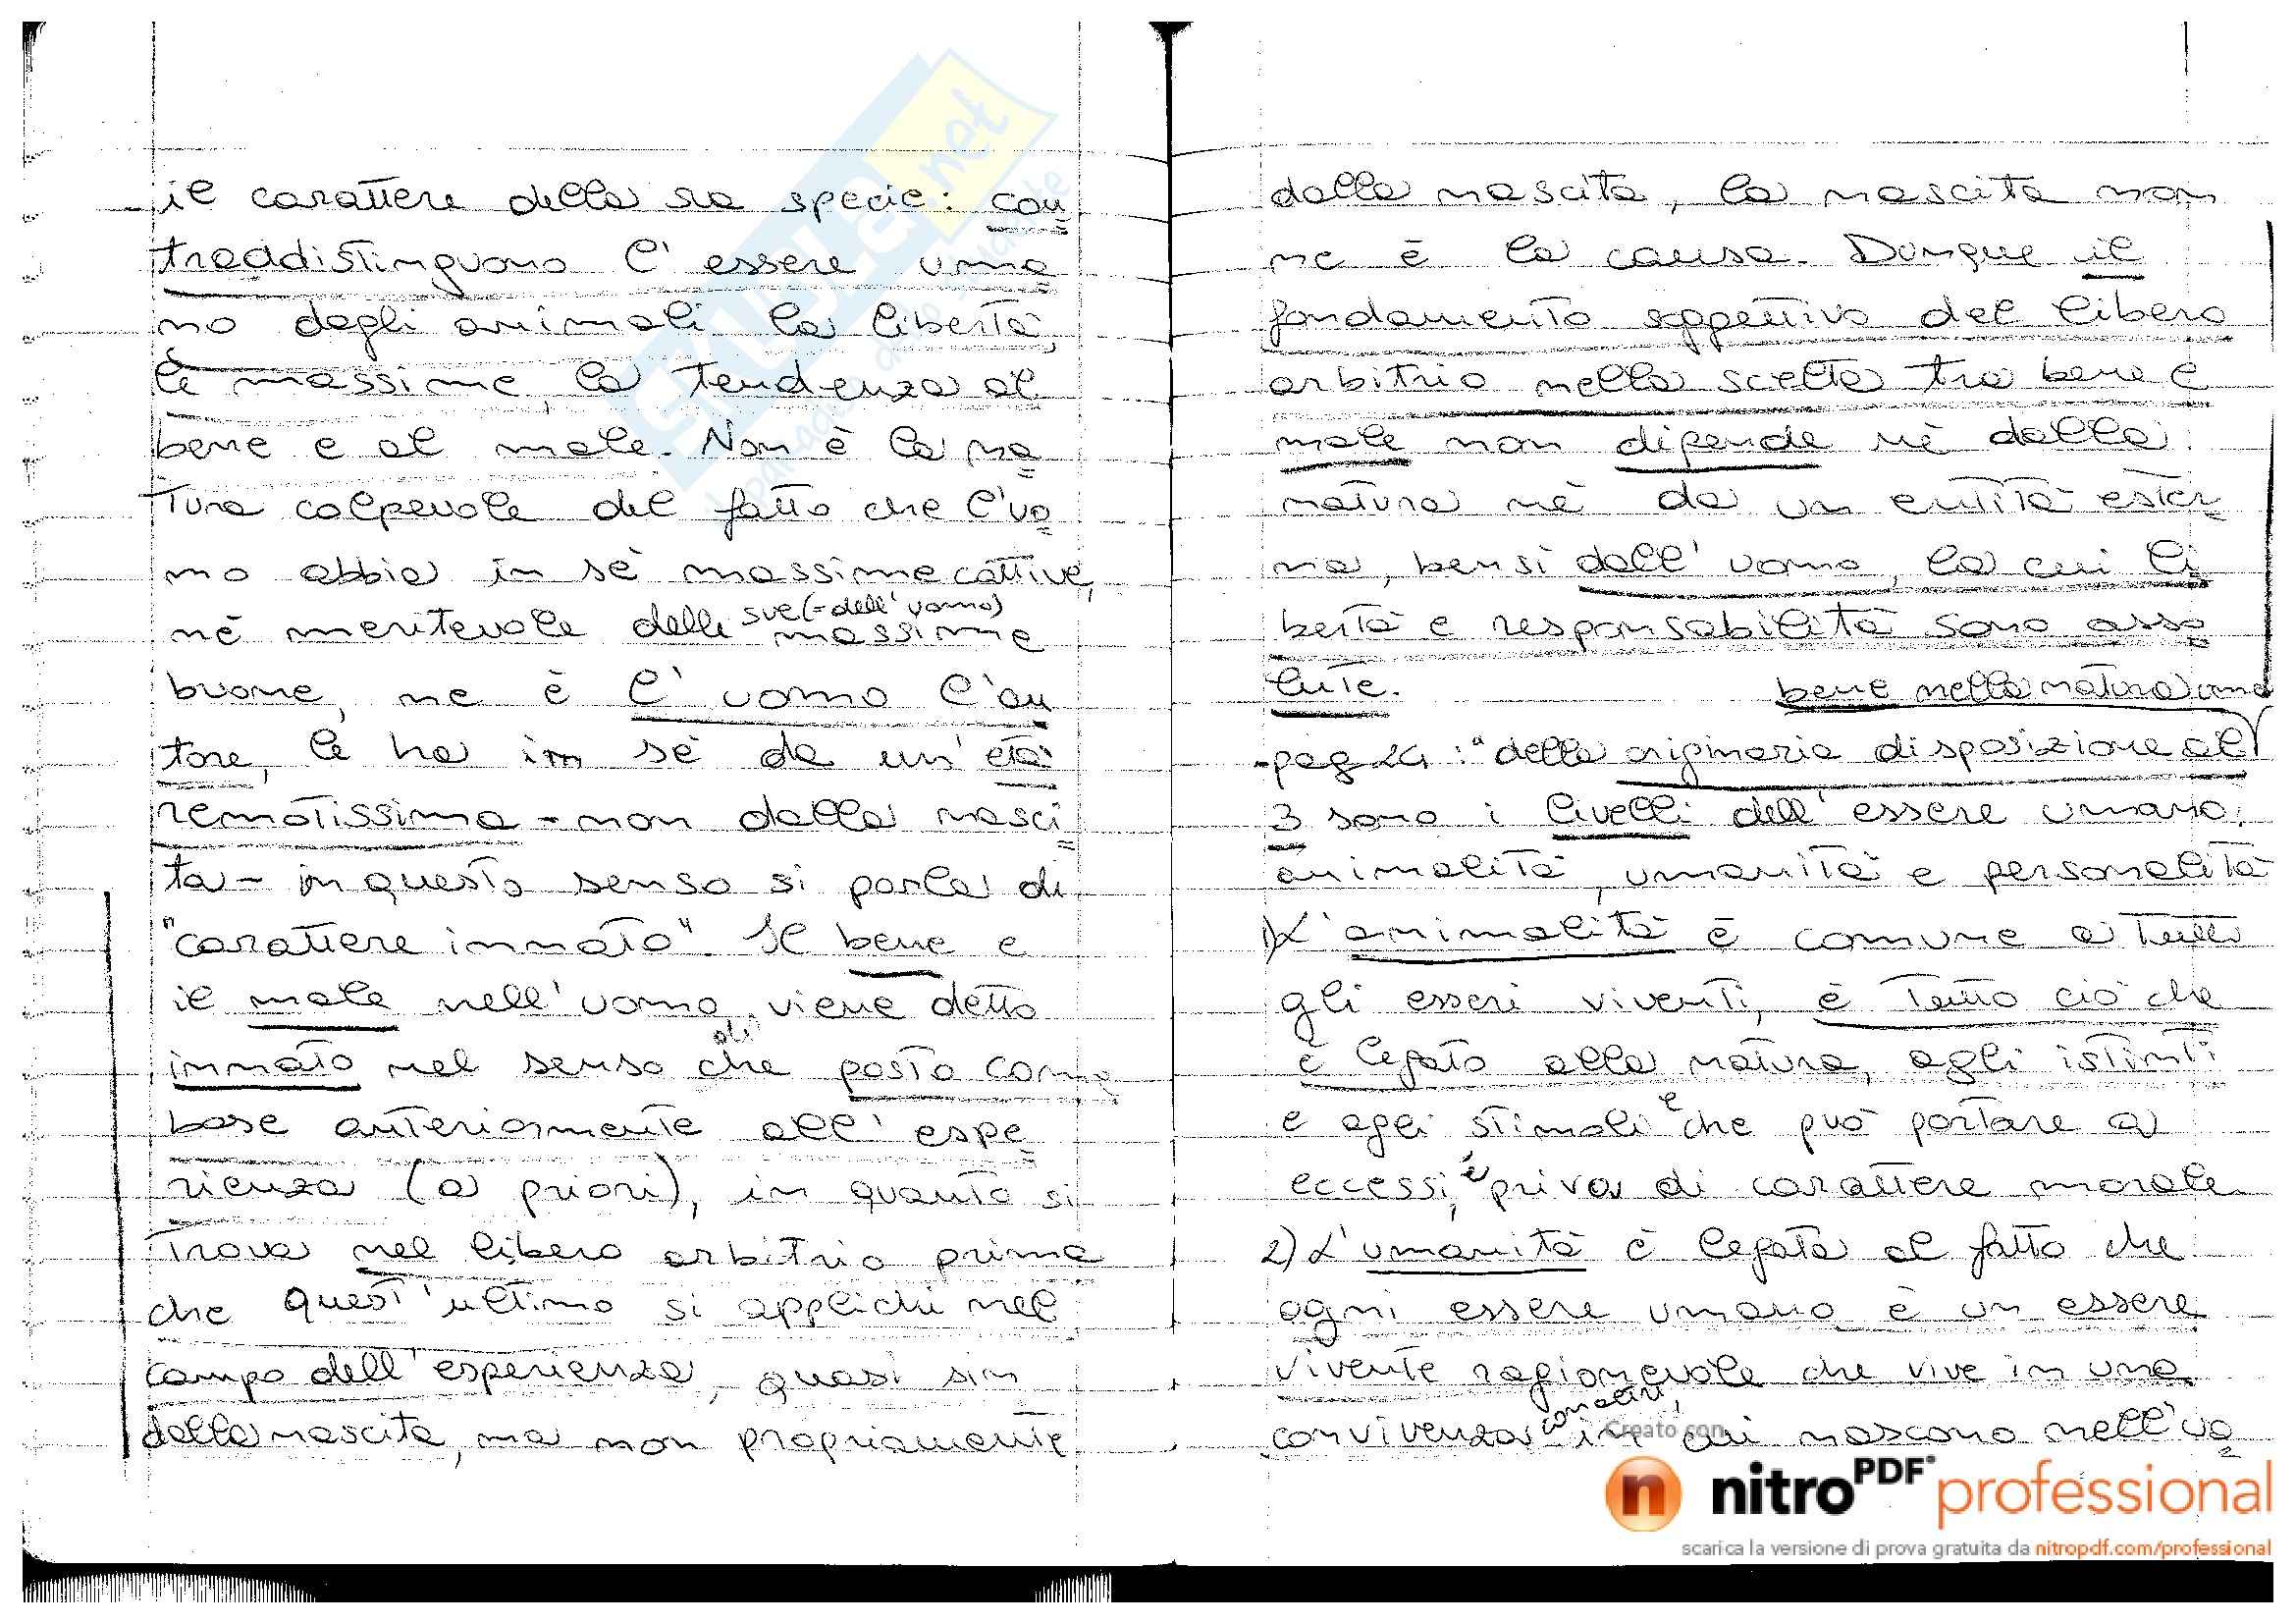 il carattere della sua specie: con
traddistinguono l'essere uma
no dagli animali la libertà,
le massime, la tendenza al
bene e al male. Non è la na
tura colpevole del fatto che l'uo
mo abbia in sè massime cattive,
nè meritevole delle sue (= dell'uomo) massime
buone, ne è l'uomo l'au
tore, le ha in sè da un'età
remotissima - non dalla nasci
ta - in questo senso si parla di
"carattere innato". Il bene e
il male nell'uomo viene detto
innato nel senso di che posto come
base anteriormente all'espe
rienza (a priori), in quanto si
trova nel libero arbitrio prima
che quest'ultimo si applichi nel
campo dell'esperienza, quasi sin
dalla nascita, ma non propriamente
dalla nascita, la nascita non
ne è la causa. Dunque il
fondamento soggettivo del libero
arbitrio nella scelta tra bene e
male non dipende nè dalla
natura nè da un entità ester
na, bensì dall'uomo, la cui li
bertà e responsabilità sono asso
lute.
bene nella natura
- pag 24: "della originaria disposizione al
3 sono i livelli dell'essere umano:
animalità, umanità e personalità
1) L'animalità è comune a tutti
gli esseri viventi, è tutto ciò che
è legato alla natura, agli istinti
e agli stimoli e che può portare a
eccessi, è priva di carattere morale
2) L'umanità è legata al fatto che
ogni essere umano è un essere
vivente ragionevole che vive in una
convivenza in cui nascono nell'uo
Creato con
nitroPDF professional
scarica la versione di prova gratuita da nitropdf.com/professional